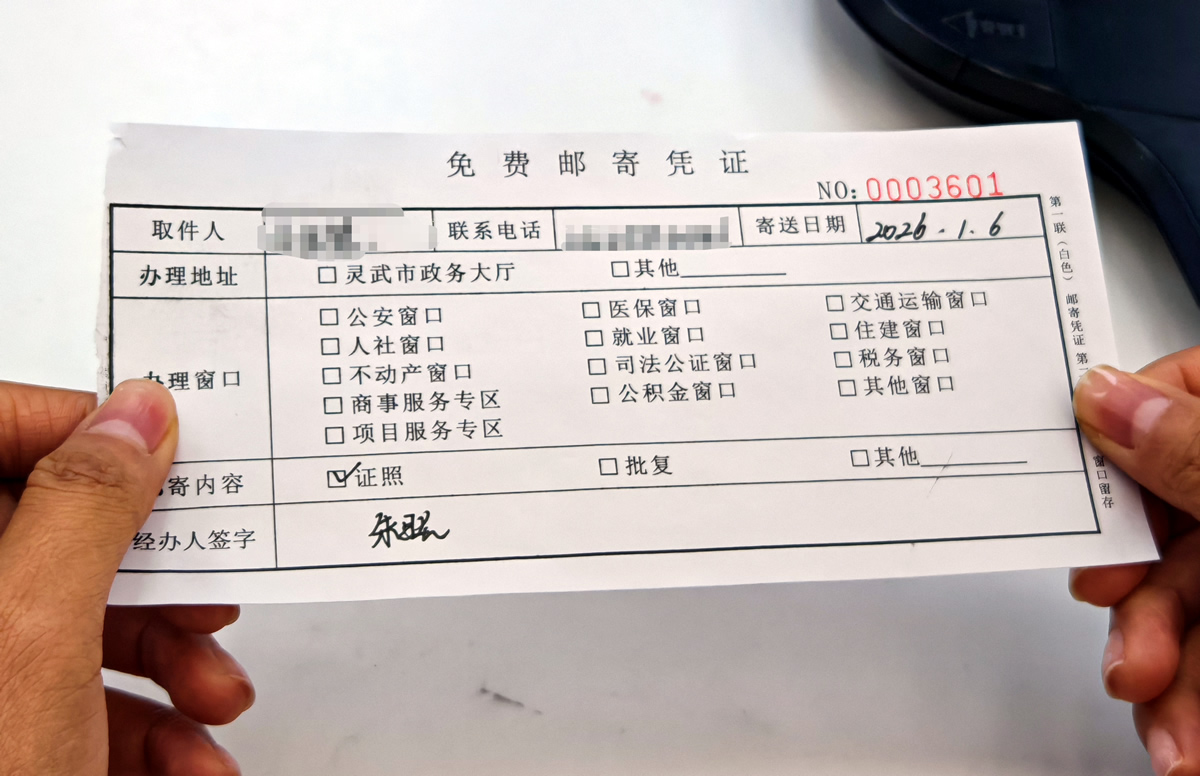 免费邮寄凭证
NO: 0003601
取件人 联系电话 寄送日期 2026.1.6
办理地址 □灵武市政务大厅 □其他
办理窗口
□公安窗口 □医保窗口 □交通运输窗口
□人社窗口 □就业窗口 □住建窗口
□不动产窗口 □司法公证窗口 □税务窗口
□商事服务专区 □公积金窗口 □其他窗口
□项目服务专区
寄内容 ☑证照 □批复 □其他
经办人签字
第一联（白色） 邮寄凭证 第
窗口留存